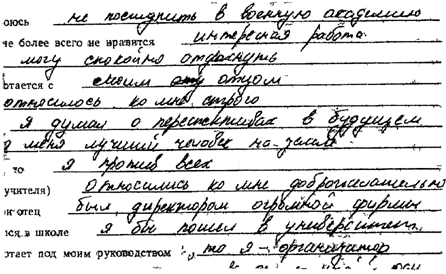 оюсь не поступить в военную академию
не более всего не нравится интересная работа
могу спокойно отдохнуть
отается с своим отцом
относилось ко мне строго
я думал о перспективах в будущем
меня лучший человек на земле
то я против всех
учителя) относились ко мне доброжелательно
отец был директором огромной фирмы
в школе я бы пошел в университет,
отает под моим руководством то я - организатор